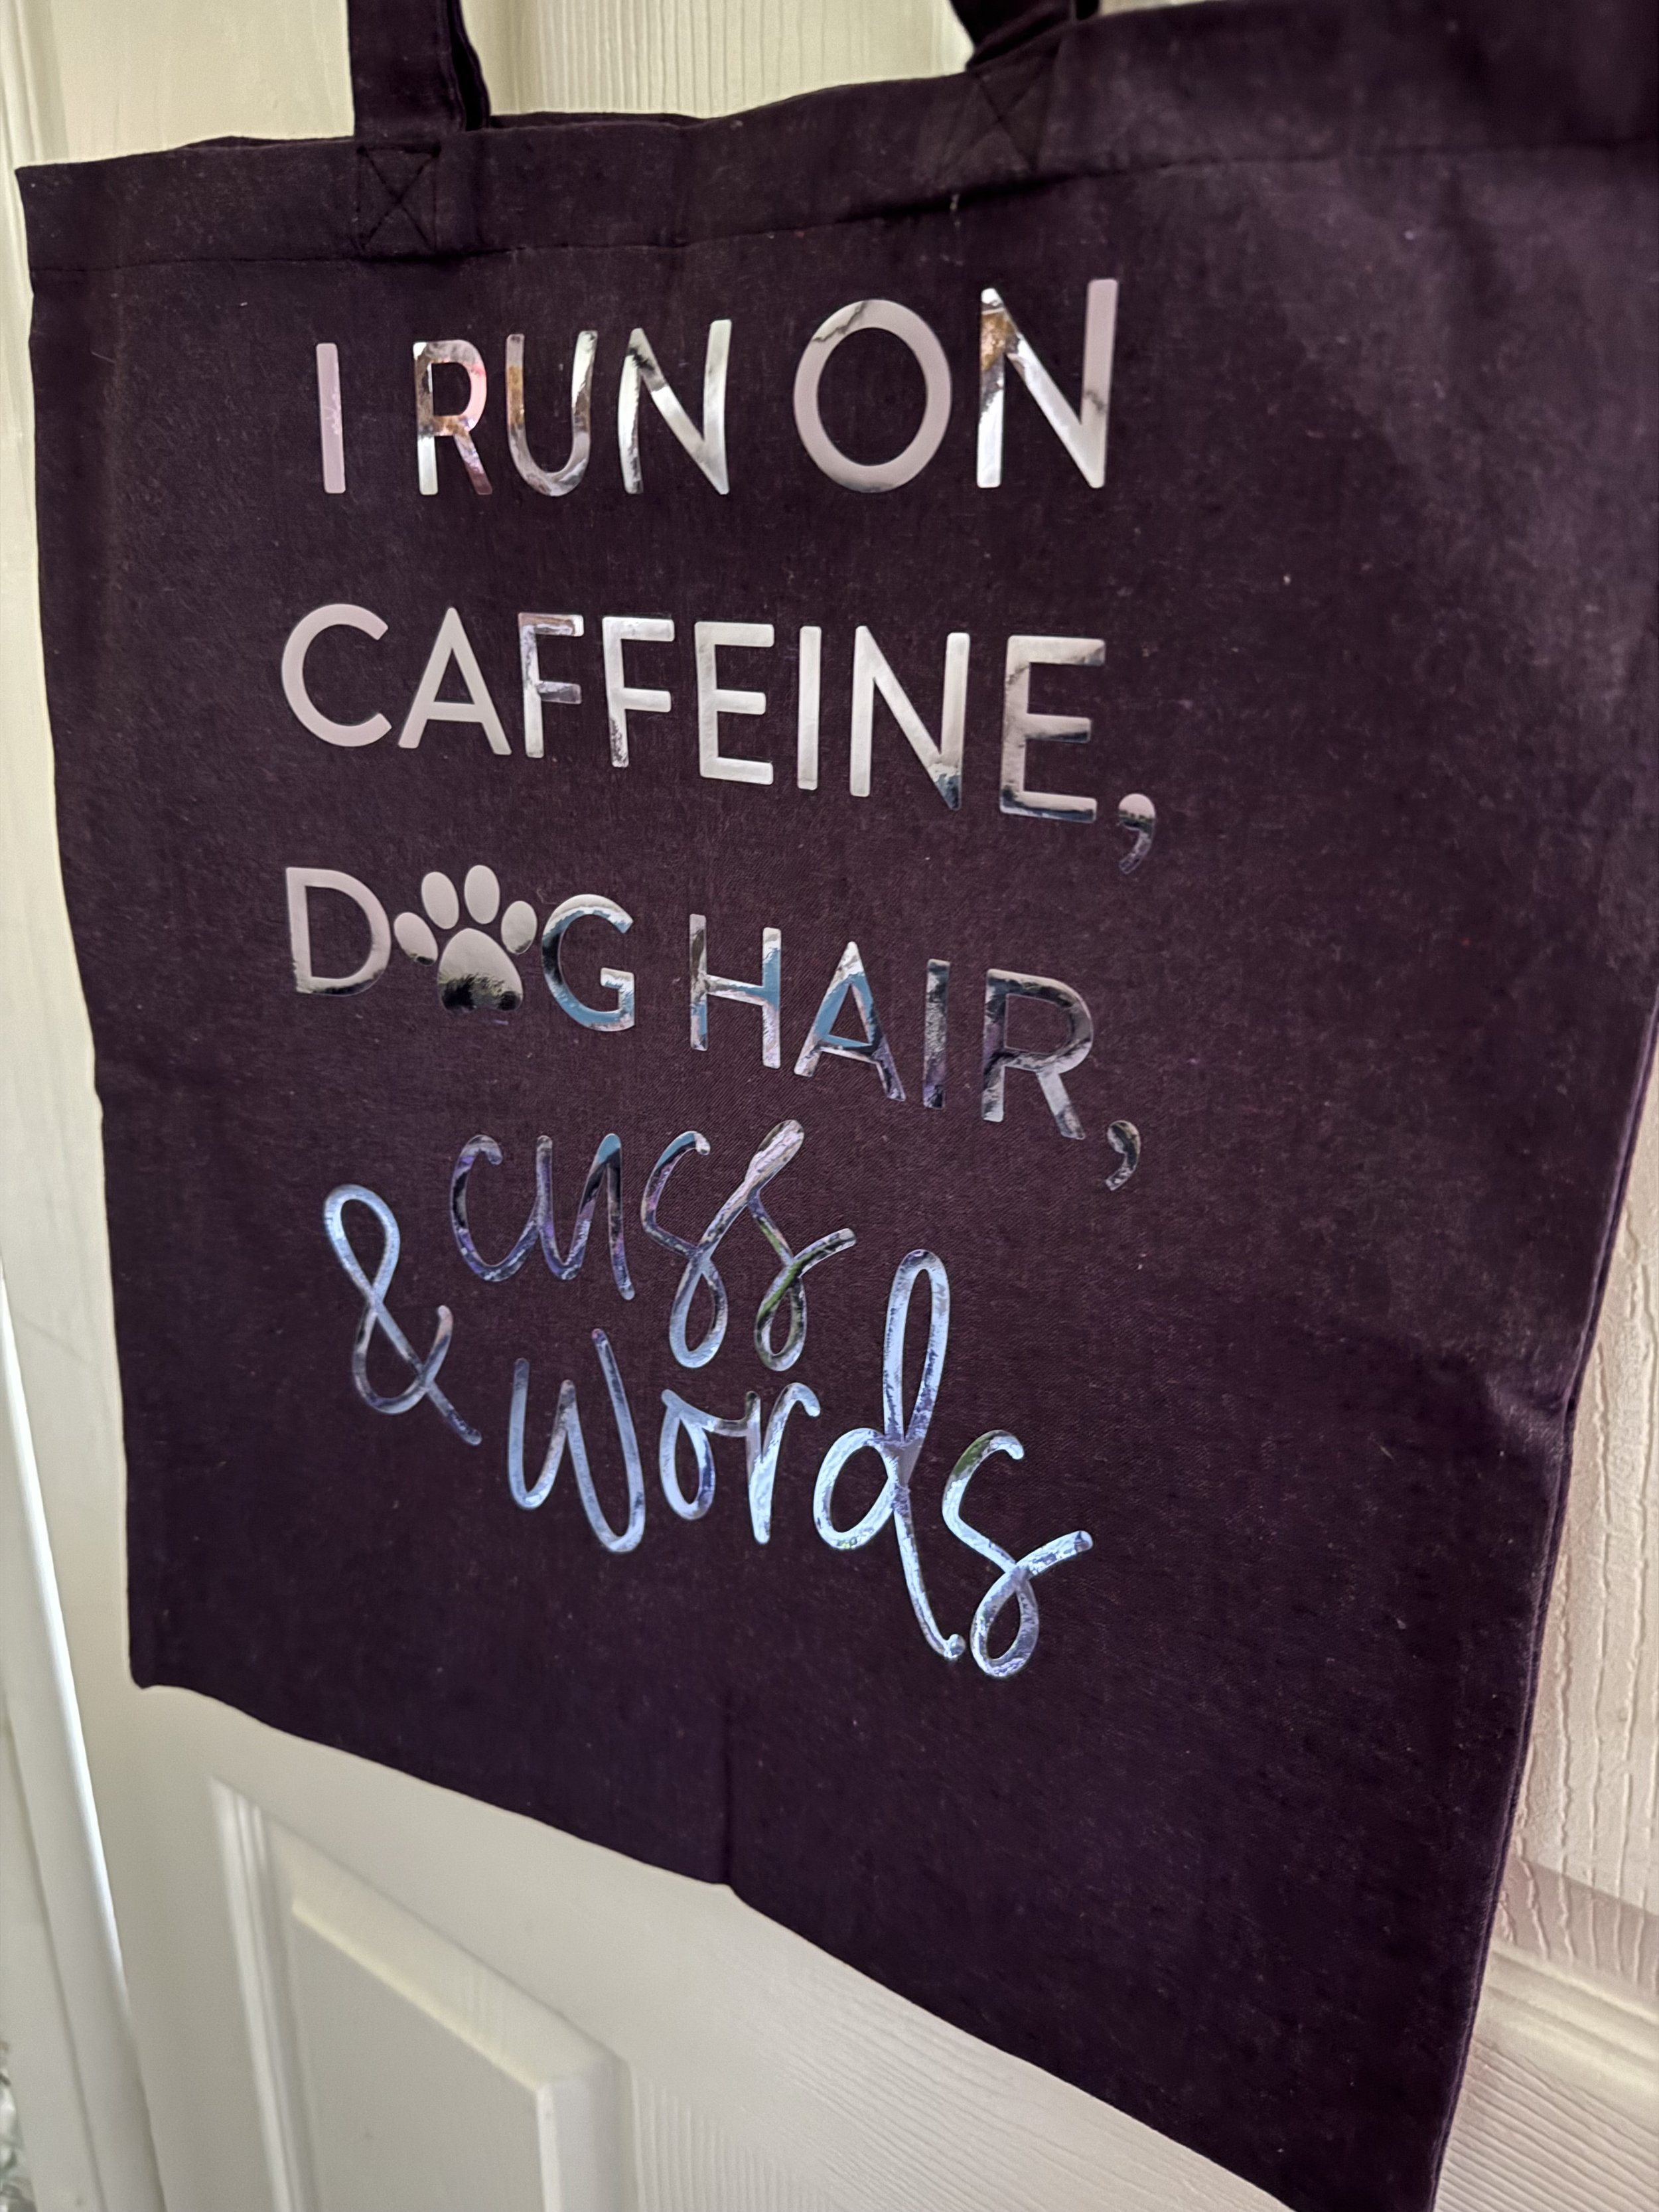 I RUN ON
CAFFEINE,
DOG HAIR,
& cuss
words